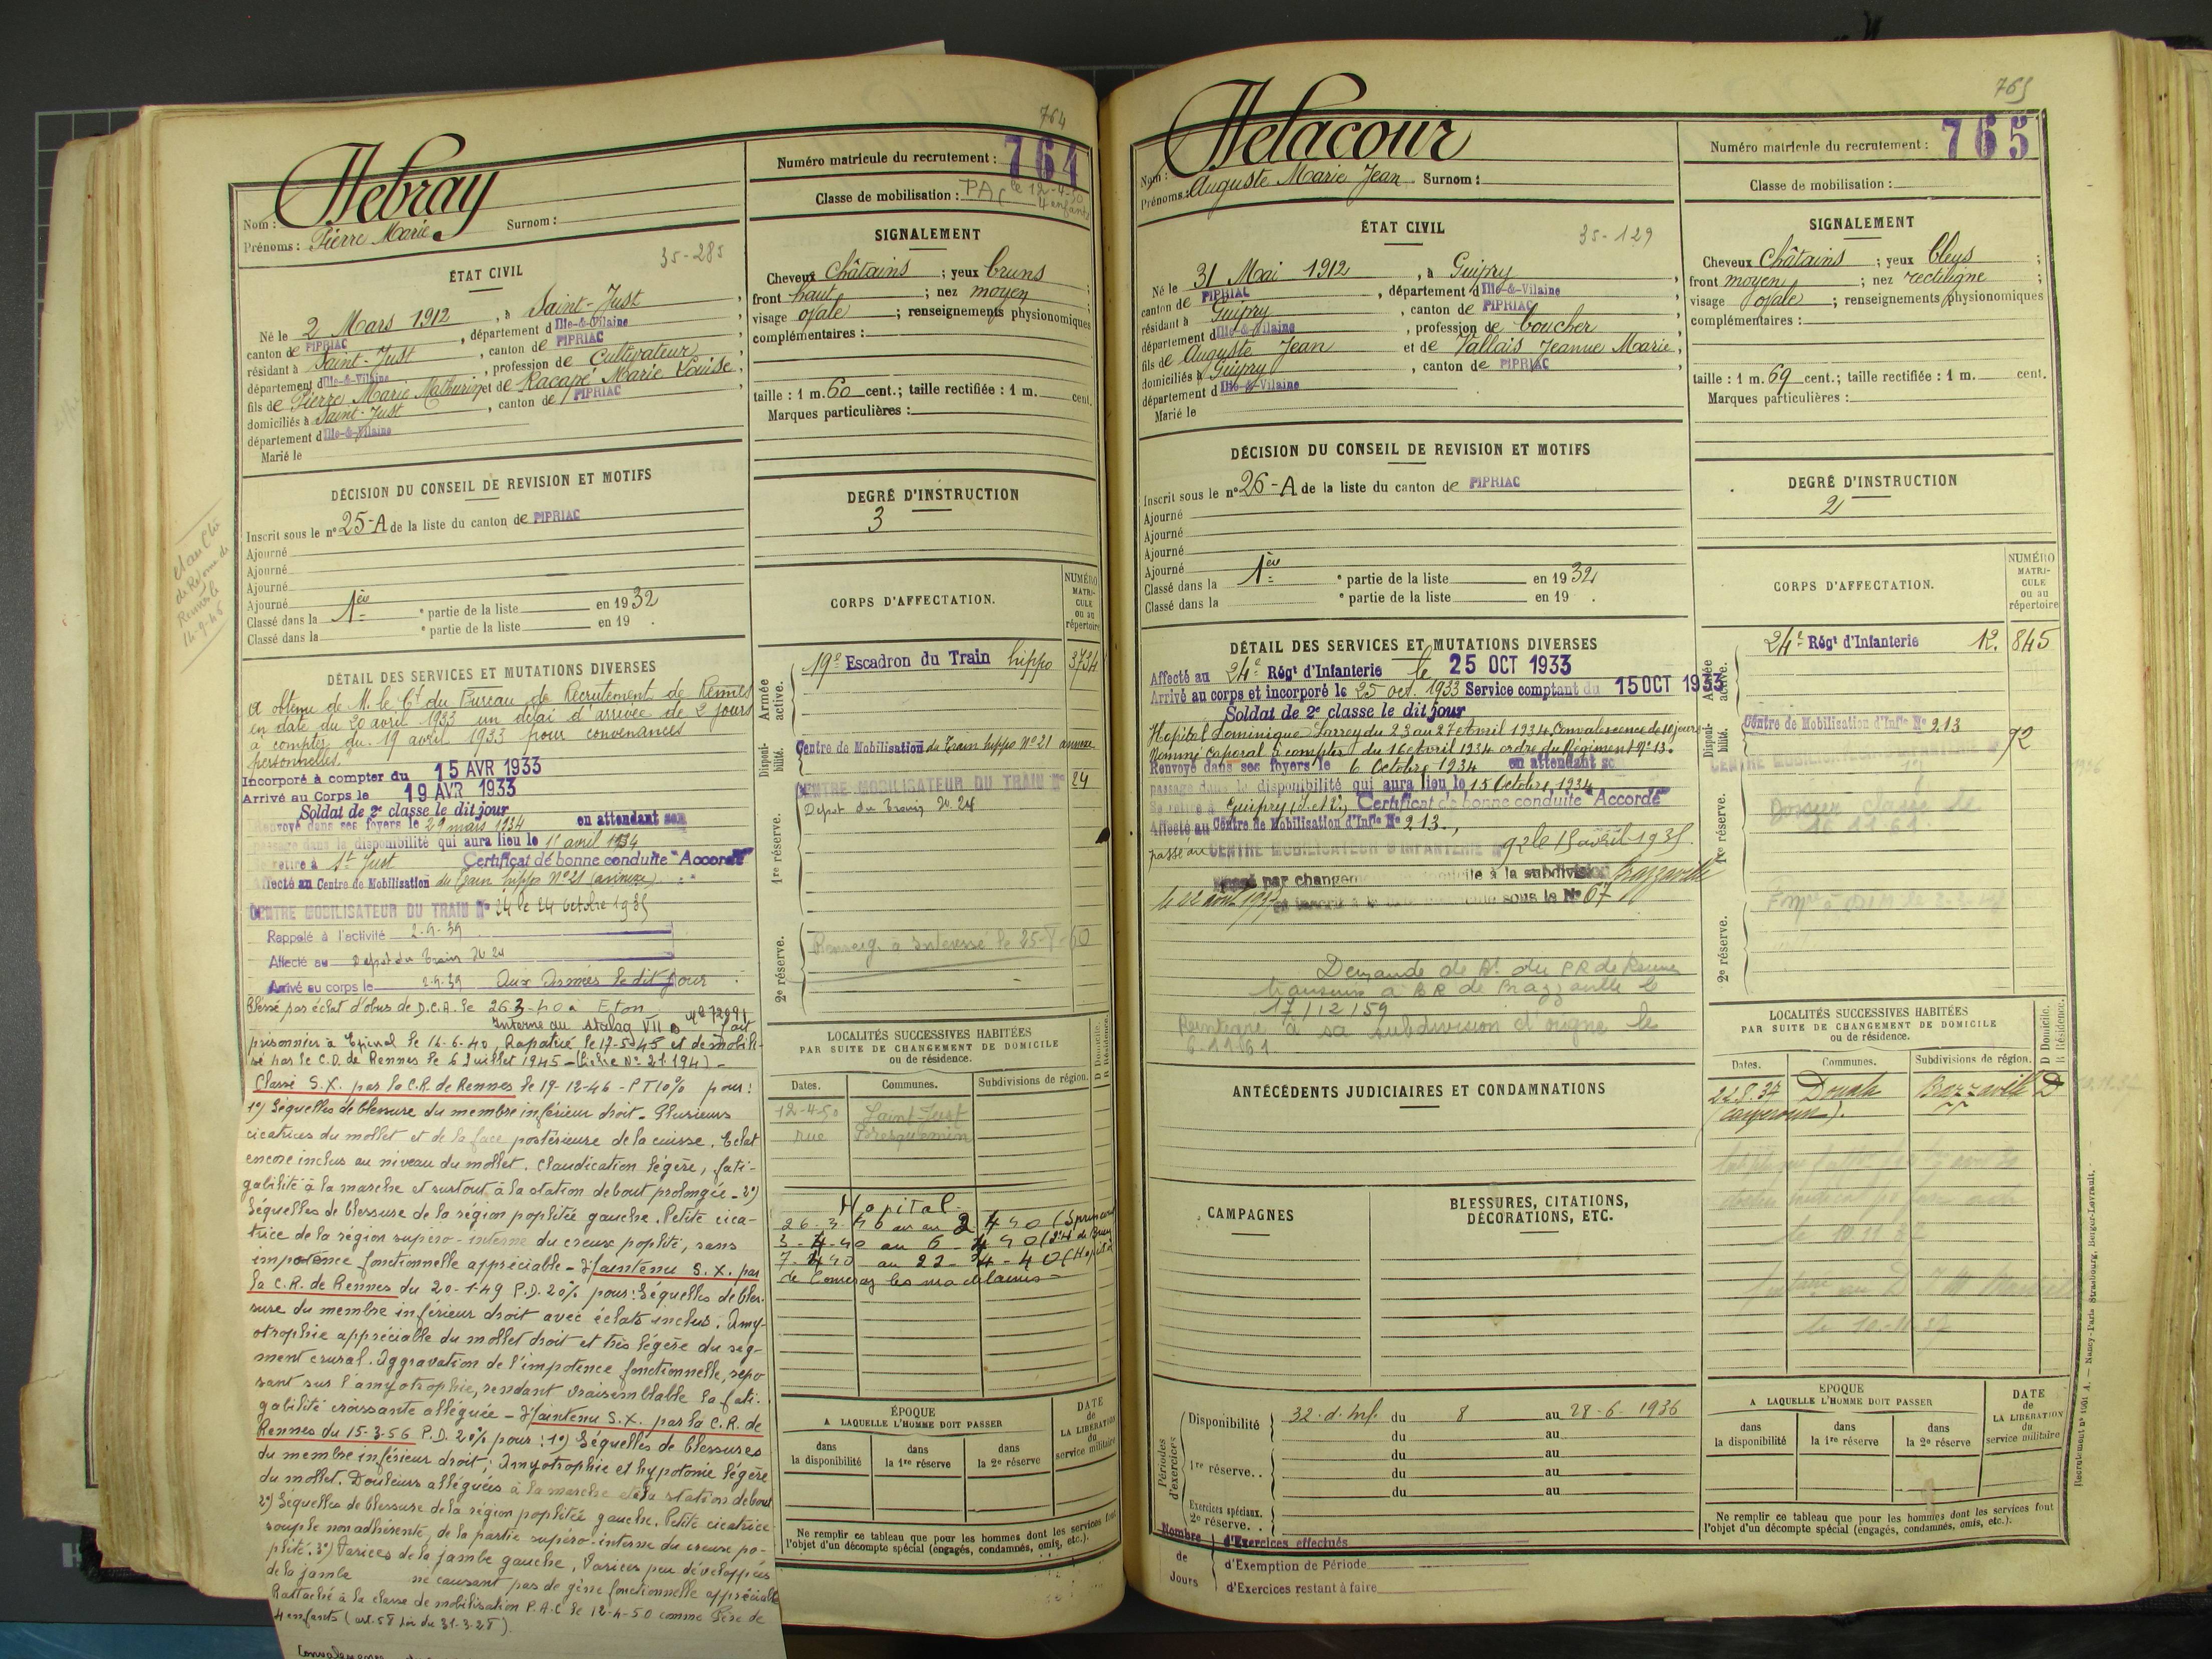 764
Numéro matricule du recrutement : 764
Classe de mobilisation : PAC le 12-4-50
4 enfants
Nom : Debray
Prénoms : Pierre Marie Surnom :
35-285
ÉTAT CIVIL
Né le 2 Mars 1912, à Saint-Just,
canton de PIPRIAC, département d Ille-&-Vilaine
résidant à Saint-Just, canton de PIPRIAC
département d Ille-&-Vilaine, profession de Cultivateur,
fils de Pierre Marie Mathurin et de Racapé Marie Louise,
domiciliés à Saint-Just, canton de PIPRIAC
département d Ille-&-Vilaine
Marié le
SIGNALEMENT
Cheveux Châtains ; yeux bruns ;
front haut ; nez moyen ;
visage ovale ; renseignements physionomiques
complémentaires :
taille : 1 m. 60 cent.; taille rectifiée : 1 m. cent.
Marques particulières :
DÉCISION DU CONSEIL DE REVISION ET MOTIFS
Inscrit sous le n° 25-A de la liste du canton de PIPRIAC
Ajourné
Ajourné
Ajourné
Ajourné
Classé dans la 1ère partie de la liste en 1932
Classé dans la partie de la liste en 19 .
DEGRÉ D'INSTRUCTION
3
CORPS D'AFFECTATION.
NUMÉRO MATRICULE ou au répertoire
Armée active.
19e Escadron du Train hippo 3734
Disponibilité.
Centre de Mobilisation du Train hippo N° 21 annexe
1re réserve.
CENTRE MOBILISATEUR DU TRAIN N° 24
Dépot du Train N° 24
2e réserve.
Renseig. à intéressé le
DÉTAIL DES SERVICES ET MUTATIONS DIVERSES
A obtenu de M. le Ct du Bureau de Recrutement de Rennes
en date du 20 avril 1933 un délai d'arrivée de 2 jours
à compter du 19 avril 1933 pour convenances
personnelles.
Incorporé à compter du 15 AVR 1933
Arrivé au Corps le 19 AVR 1933
Soldat de 2e classe le dit jour
Renvoyé dans ses foyers le 29 mars 1934 en attendant son
passage dans la disponibilité qui aura lieu le 15 avril 1934
Se retire à St Just Certificat de bonne conduite "Accordé"
Affecté au Centre de Mobilisation du Train hippo N° 21 (annexe)
CENTRE MOBILISATEUR DU TRAIN N° 24 le 24 Octobre 1935
Rappelé à l'activité 2-9-39
Affecté au Dépot du Train N° 24
Arrivé au corps le 2-9-39 Aux Armées le dit jour
Blessé par éclat d'obus de D.C.A. le 26 3-40 à Eton
Interné au stalag VII B N° 72991 fait
prisonnier à Epinal le 16-6-40, Rapatrié le 17-5-45 et démobili-
sé par le C.D. de Rennes le 6 Juillet 1945 - (Fiche N° 21.194) -
Classé S.X. par la C.R. de Rennes le 19-12-46 - P T 10% pour :
1°) Séquelles de blessure du membre inférieur droit. Plusieurs
cicatrices du mollet et de la face postérieure de la cuisse. Eclat
encore inclus au niveau du mollet. Claudication légère, fati-
gabilité à la marche et surtout à la station debout prolongée - 2°)
Séquelles de blessure de la région poplitée gauche. Petite cica-
trice de la région supero-interne du creux poplité, sans
impotence fonctionnelle appréciable - Maintenu S.X. par
la C.R. de Rennes du 20-1-49 P.D. 20% pour : Séquelles de bles-
sure du membre inférieur droit avec éclats inclus. Amy-
otrophie appréciable du mollet droit et très légère du seg-
ment crural. Aggravation de l'impotence fonctionnelle, repo
sant sur l'amyotrophie, rendant vraisemblable la fati-
gabilité croissante alléguée - Maintenu S.X. par la C.R. de
Rennes du 15-3-56 P.D. 20% pour : 1°) Séquelles de blessures
du membre inférieur droit ; Amyotrophie et hypotonie légère
du mollet. Douleurs alléguées à la marche et à la station debout
2°) Séquelles de blessure de la région poplitée gauche. Petite cicatrice
souple non adhérente, de la partie supéro-interne du creux po-
plité. 3°) Varices de la jambe gauche, Varices peu développées
de la jambe ne causant pas de gêne fonctionnelle appréciable
Rattaché à la classe de mobilisation P.A.C le 12-4-50 comme Père de
4 enfants (art. 58 Loi du 31-3-28).
LOCALITÉS SUCCESSIVES HABITÉES
PAR SUITE DE CHANGEMENT DE DOMICILE
ou de résidence.
D Domicile. R Résidence.
Dates. Communes. Subdivisions de région.
12-4-50 Saint-Just
rue
Hopital
26-3-40 au 2 4 40
3-4-40 au 6-4 40
7-4 40 au 22-4-40 (Hopital
ÉPOQUE
A LAQUELLE L'HOMME DOIT PASSER
dans la disponibilité
dans la 1re réserve
dans la 2e réserve
DATE de LA LIBÉRATION du service militaire
Ne remplir ce tableau que pour les hommes dont les services font
l'objet d'un décompte spécial (engagés, condamnés, omis, etc.).
765
Numéro matricule du recrutement : 765
Classe de mobilisation :
Nom : Delacour
Prénoms : Auguste Marie Jean Surnom :
35-129
ÉTAT CIVIL
Né le 31 Mai 1912, à Guipry,
canton de PIPRIAC, département d Ille-&-Vilaine
résidant à Guipry, canton de PIPRIAC
département d Ille-&-Vilaine, profession de boucher,
fils de Auguste Jean et de Vallais Jeanne Marie,
domiciliés à Guipry, canton de PIPRIAC
département d Ille-&-Vilaine
Marié le
SIGNALEMENT
Cheveux Châtains ; yeux bleus ;
front moyen ; nez rectiligne ;
visage ovale ; renseignements physionomiques
complémentaires :
taille : 1 m. 69 cent.; taille rectifiée : 1 m. cent.
Marques particulières :
DÉCISION DU CONSEIL DE REVISION ET MOTIFS
Inscrit sous le n° 26-A de la liste du canton de PIPRIAC
Ajourné
Ajourné
Ajourné
Ajourné
Classé dans la 1ère partie de la liste en 1932
Classé dans la partie de la liste en 19 .
DEGRÉ D'INSTRUCTION
2
CORPS D'AFFECTATION.
NUMÉRO MATRICULE ou au répertoire
Armée active.
24e Régt d'Infanterie 12. 845
Disponibilité.
Centre de Mobilisation d'Infie N° 213
CENTRE MOBILISATEUR 92
1re réserve.
Dossier classé le
16 11 61
2e réserve.
DÉTAIL DES SERVICES ET MUTATIONS DIVERSES
Affecté au 24e Régt d'Infanterie le 25 OCT 1933
Arrivé au corps et incorporé le 25 oct. 1933 Service comptant du 15 OCT 1933
Soldat de 2e classe le dit jour
Hopital Dominique Larrey du 23 au 27 Avril 1934. Convalescence de 10 jours
Nommé Caporal à compter du 16 Avril 1934 ordre du Régiment N° 13.
Renvoyé dans ses foyers le 6 Octobre 1934 en attendant so
passage dans la disponibilité qui aura lieu le 15 Octobre 1934
Se retire à Guipry (I. et V.) Certificat de bonne conduite "Accordé"
Affecté au Centre de Mobilisation d'Infie N° 213.
passé au CENTRE MOBILISATEUR D'INFANTERIE N° 92 le 15 avril 1935.
Passé par changement de domicile à la subdivision Brazzaville
le 22 août 1937 sous le N° 67
Demande de Bt du P.R de Rennes
transmis à B R de Brazzaville le
17/12/59
Réintégré à sa subdivision d'origne le
6-11-61
ANTÉCÉDENTS JUDICIAIRES ET CONDAMNATIONS
CAMPAGNES
BLESSURES, CITATIONS,
DÉCORATIONS, ETC.
LOCALITÉS SUCCESSIVES HABITÉES
PAR SUITE DE CHANGEMENT DE DOMICILE
ou de résidence.
D Domicile. R Résidence.
Dates. Communes. Subdivisions de région.
22.8.37 Douala Brazzaville D
(Cameroun).
le 10 11 37
Périodes d'exercices
Disponibilité 32. d. Inf. du 8 au 28-6-1936
du au
1re réserve. . du au
du au
du au
Exercices spéciaux.
2e réserve. .
Nombre de Jours
d'Exercices effectués
d'Exemption de Période
d'Exercices restant à faire
ÉPOQUE
A LAQUELLE L'HOMME DOIT PASSER
dans la disponibilité
dans la 1re réserve
dans la 2e réserve
DATE de LA LIBÉRATION du service militaire
Ne remplir ce tableau que pour les hommes dont les services font
l'objet d'un décompte spécial (engagés, condamnés, omis, etc.).
Nancy-Paris Strasbourg, Berger-Levrault.